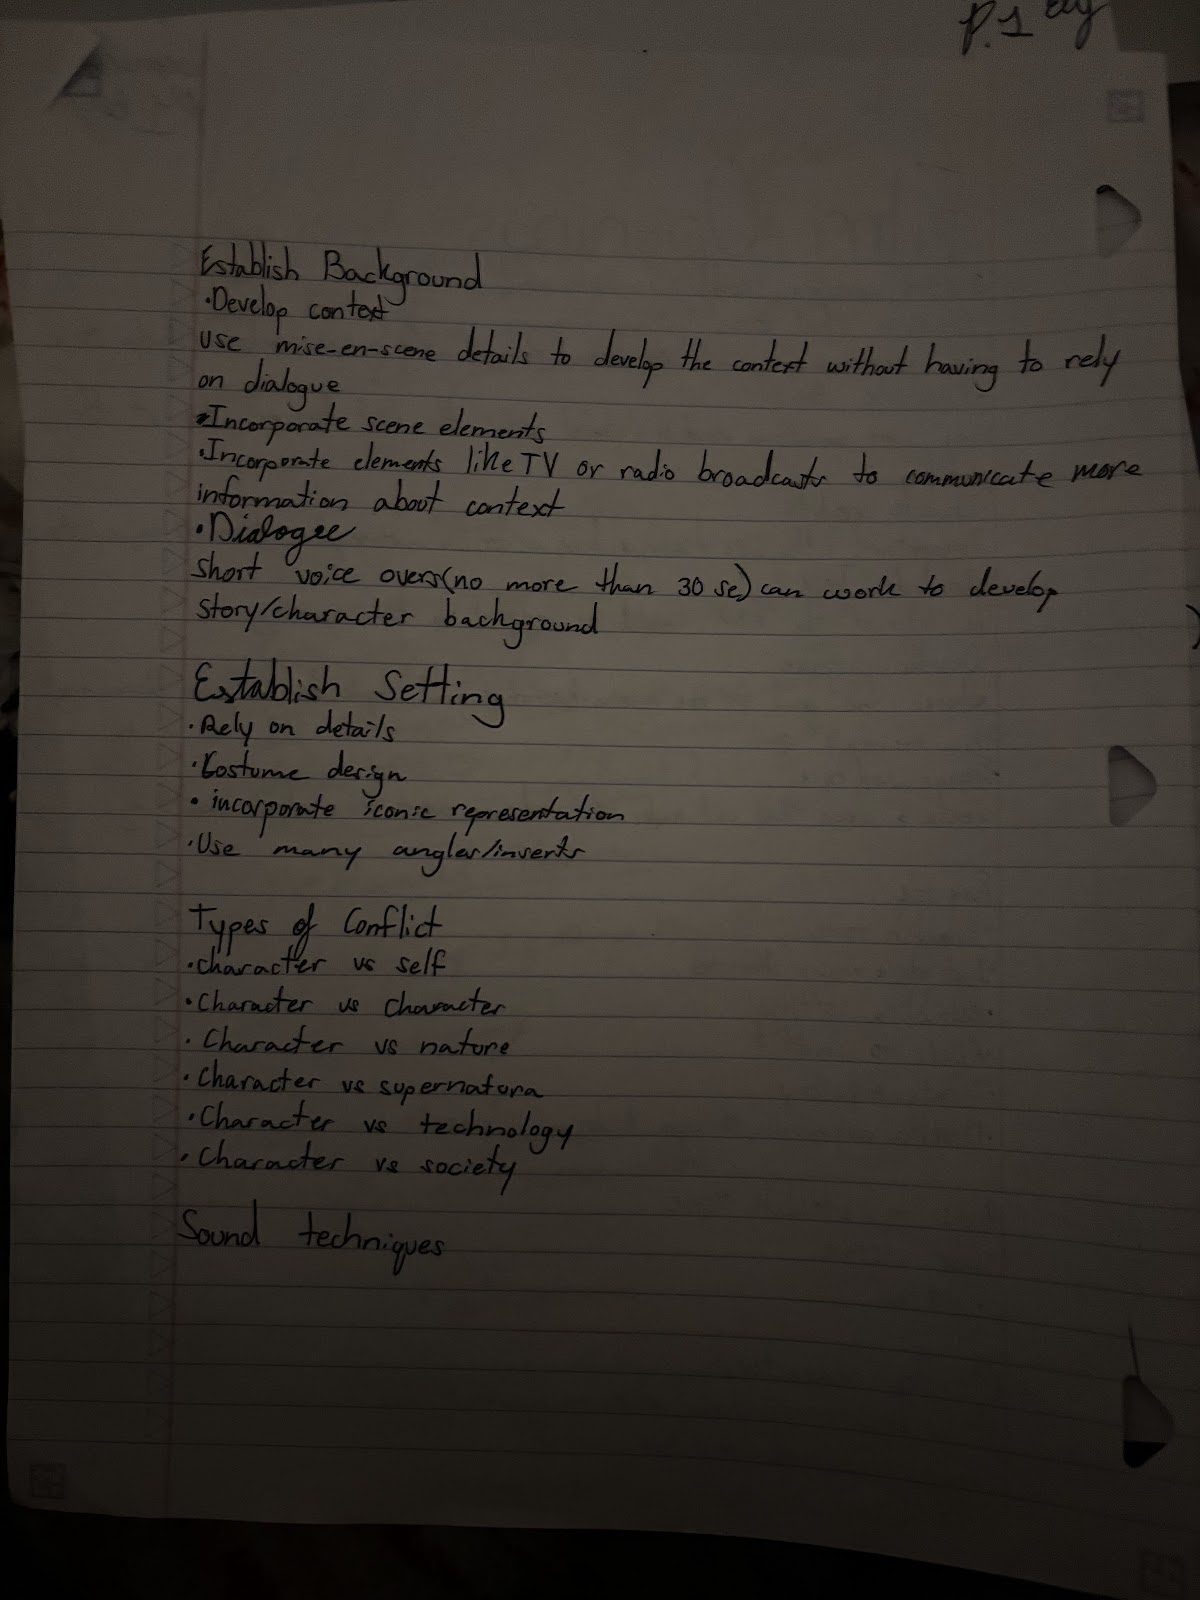 P.1
Establish Background
•Develop context
Use mise-en-scene details to develop the context without having to rely
on dialogue
•Incorporate scene elements
•Incorporate elements like TV or radio broadcasts to communicate more
information about context
•Dialogee
Short voice overs(no more than 30 se) can work to develop
story/character background
Establish Setting
•Rely on details
•Costume design
• incorporate iconic representation
•Use many angles/inserts
Types of Conflict
•character vs self
•Character vs character
• Character vs nature
•Character vs supernatura
•Character vs technology
•Character vs society
Sound techniques